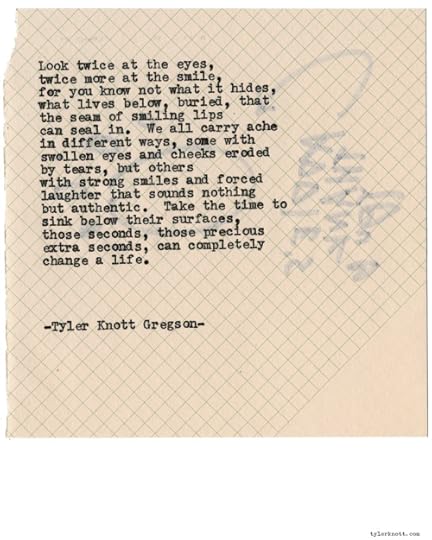 Look twice at the eyes,
twice more at the smile,
for you know not what it hides,
what lives below, buried, that
the seam of smiling lips
can seal in.  We all carry ache
in different ways, some with
swollen eyes and cheeks eroded
by tears, but others
with strong smiles and forced
laughter that sounds nothing
but authentic.  Take the time to
sink below their surfaces,
those seconds, those precious
extra seconds, can completely
change a life.
-Tyler Knott Gregson-
tylerknott.com